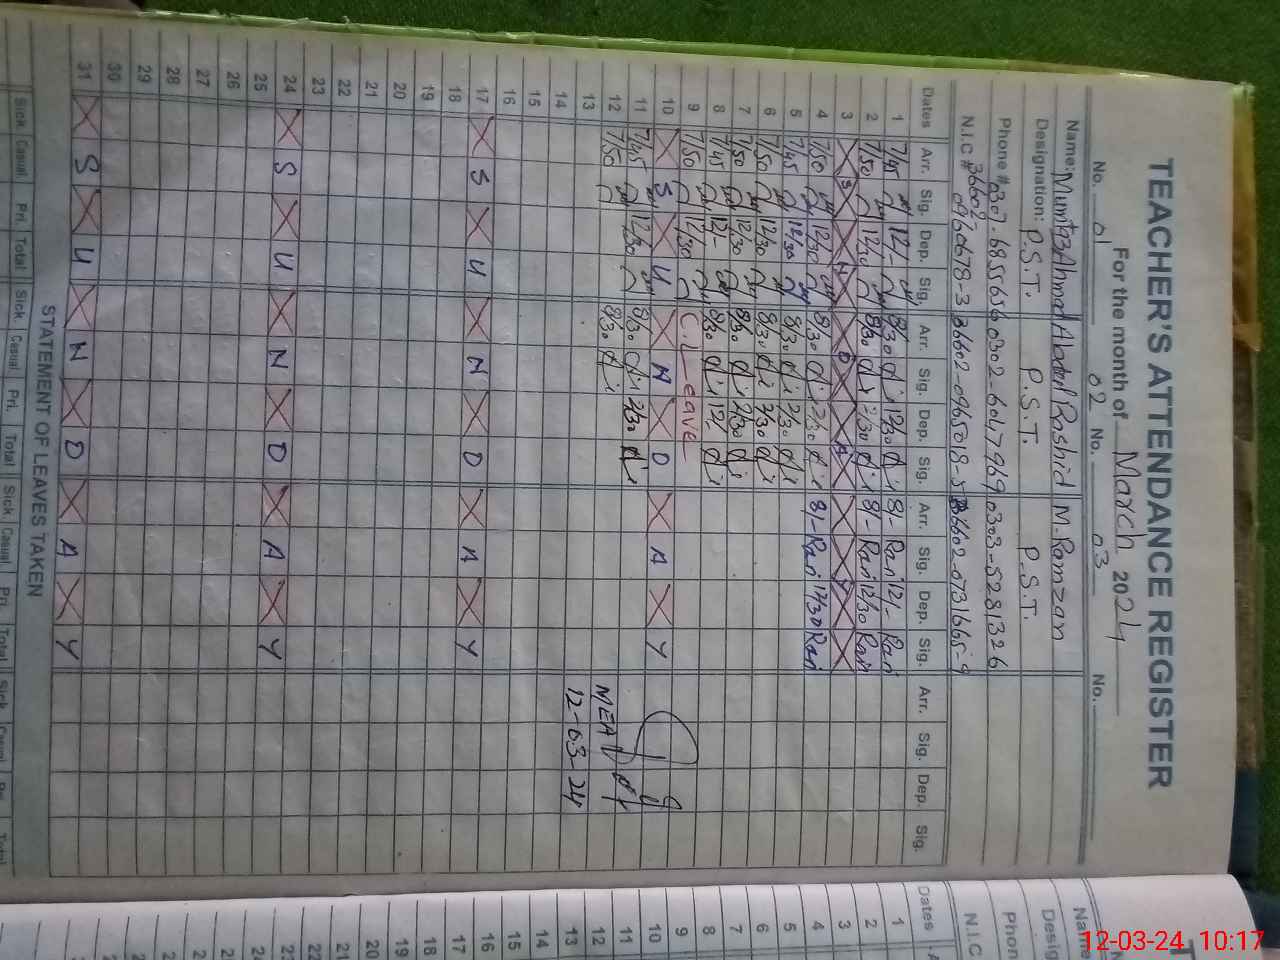 TEACHER'S ATTENDANCE REGISTER
For the month of March 2024
No. 01 No. 02 No. 03 No.
Name: Mumtaz Ahmad Abdul Rashid M. Ramzan
Designation: P.S.T. P.S.T. P.S.T.
Phone # 0302-6047969 0303-5281326
N.I.C # 36602
Dates Arr. Sig. Dep. Sig. Arr. Sig. Dep. Sig. Arr. Sig. Dep. Sig. Arr. Sig. Dep. Sig.
1 7/45 12/- 8/30 12/30 8/- 12/-
2 7/50 12/30 8/30 2/30 8/- 12/30
3 S U N D A Y
4 7/50 12/30 8/30 2/30 8/- 12/30
5 7/45 12/30 8/30 2/30
6 7/50 12/30 8/30 2/30
7 7/50 12/30 8/30 2/30
8 7/45 12/- 8/30 12/-
9 7/50 12/30 C Leave
10 S U N D A Y
11 7/45 12/30 8/30 2/30
12 7/50 8/30
MEA
12-03-24
13
14
15
16
17 S U N D A Y
18
19
20
21
22
23
24 S U N D A Y
25
26
27
28
29
30
31 S U N D A Y
STATEMENT OF LEAVES TAKEN
Sick. Casual Pri. Total Sick. Casual. Pri. Total Sick. Casual. Pri. Total Sick. Casual. Pri. Total
Dates
1
2
3
4
5
6
7
8
9
10
11
12
13
14
15
16
17
18
19
20
21
22
23
N.I.C
12-03-24 10:17